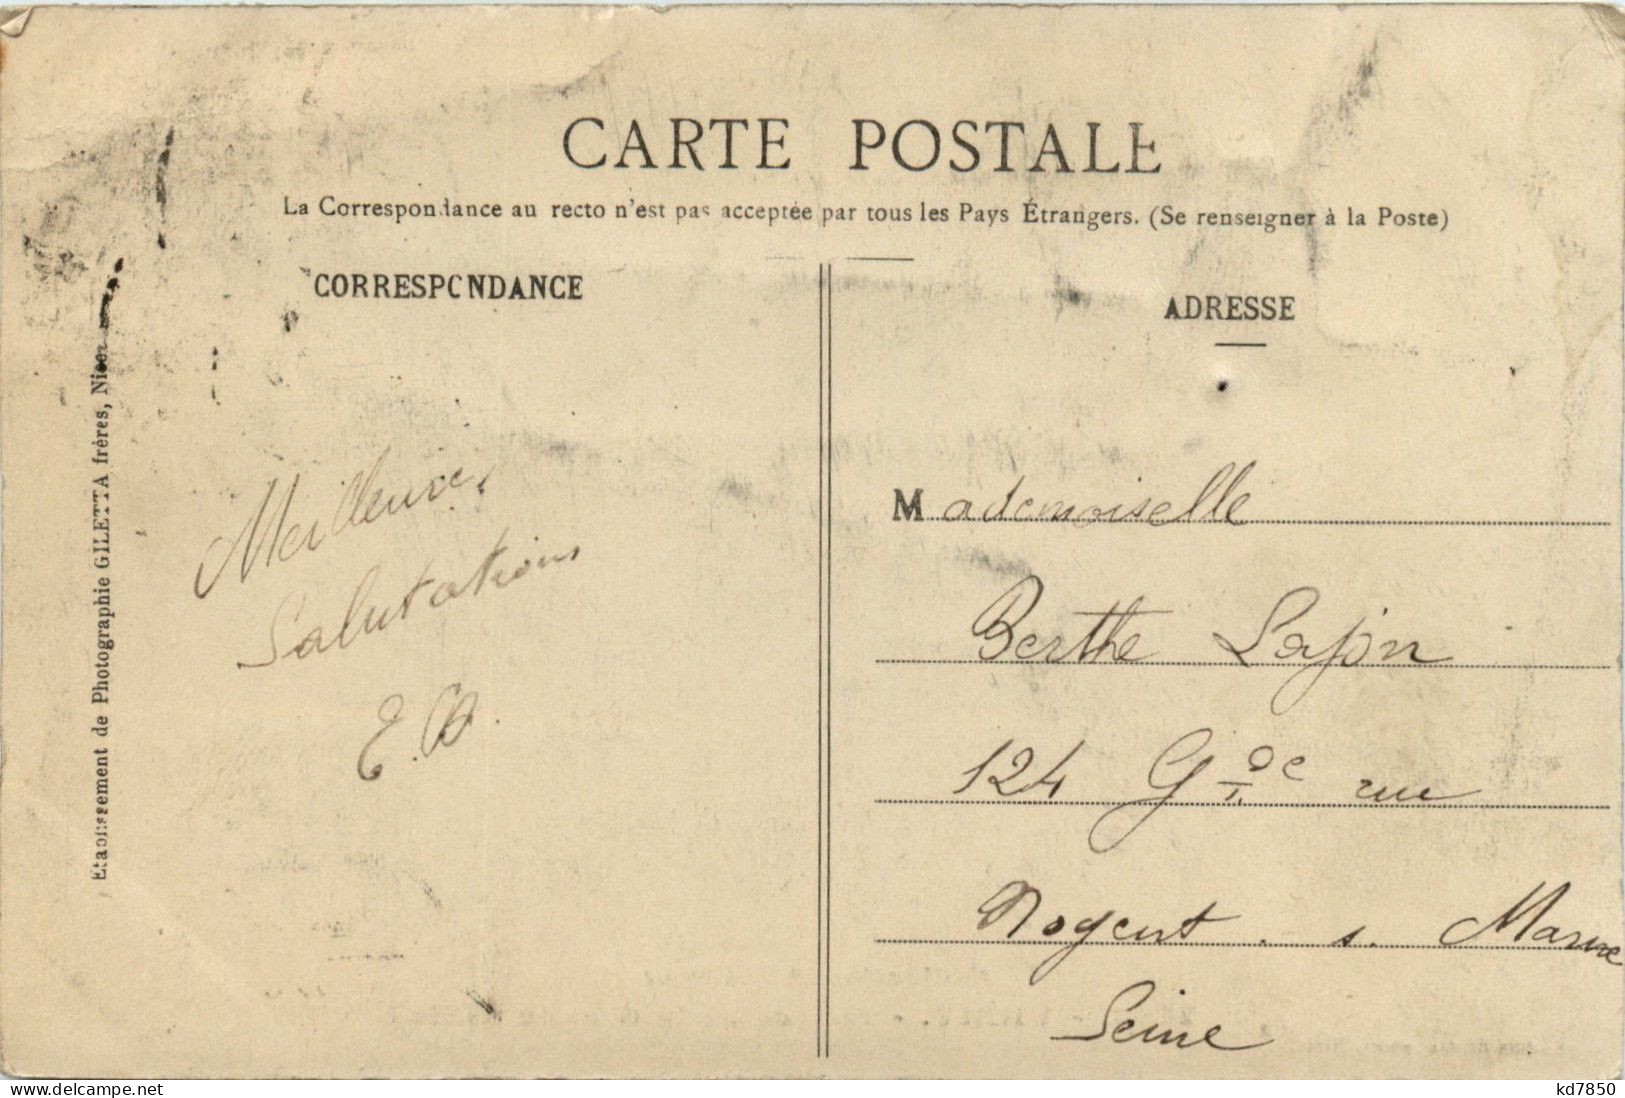 CARTE POSTALE
La Correspondance au recto n'est pas acceptée par tous les Pays Étrangers. (Se renseigner à la Poste)
CORRESPONDANCE
ADRESSE
Etablissement de Photographie GILETTA frères, Nice
Meilleures
Salutations
E.
Mademoiselle
Berthe Lajon
124 Gde rue
Nogent . s. Marne
Seine
kd7850